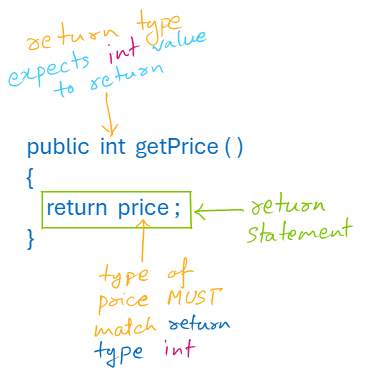 return type
expects int value
to return
public int getPrice ( )
{
return price ;
return
statement
}
type of
price MUST
match return
type int